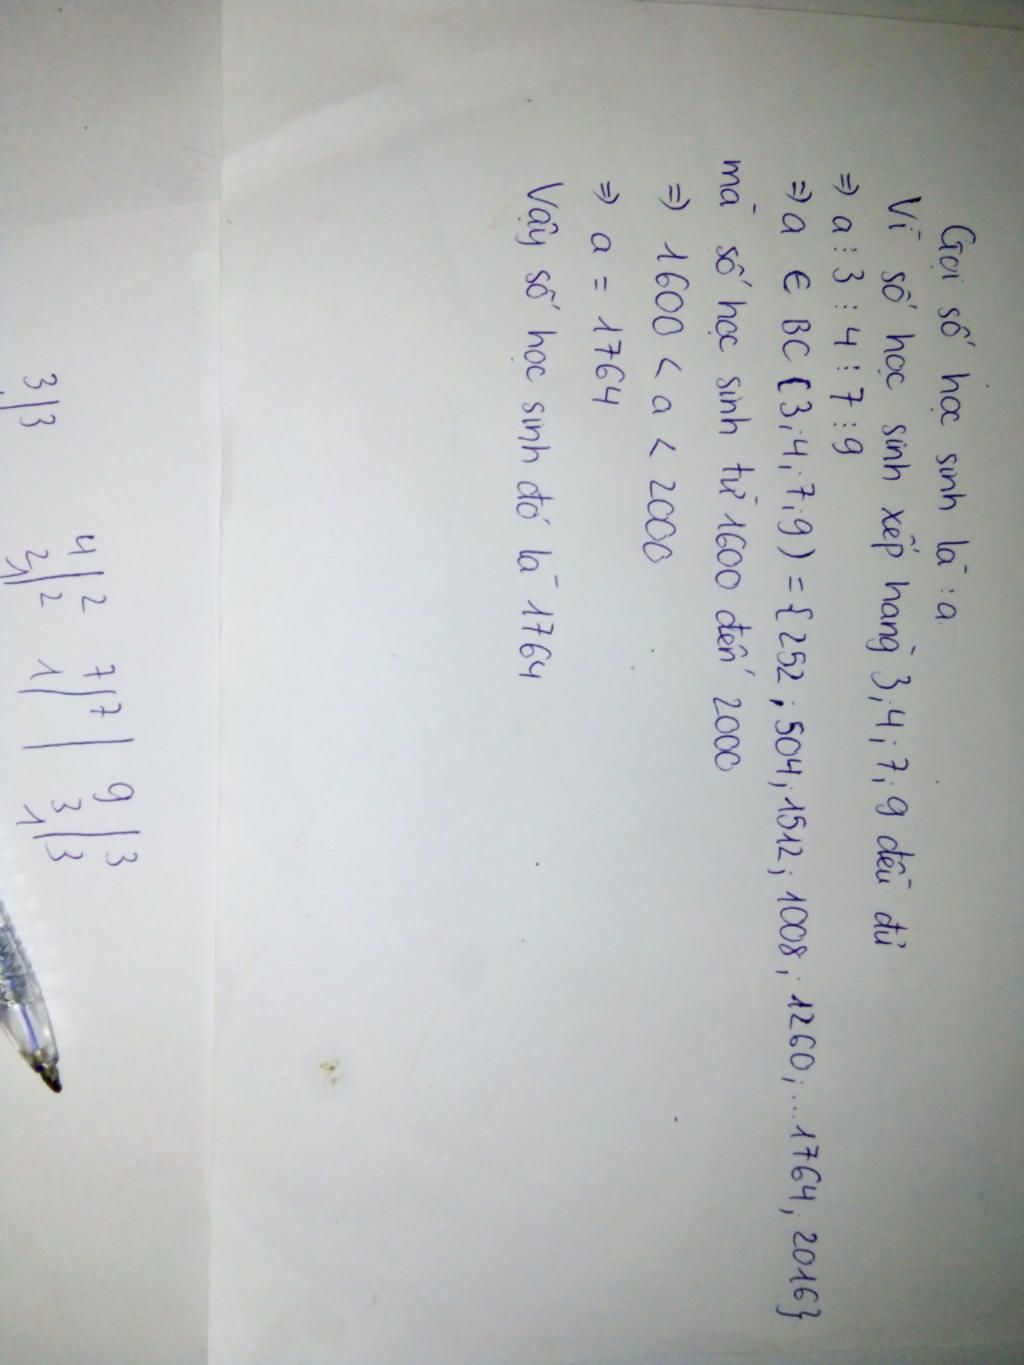 Gọi số học sinh là : a
Vì số học sinh xếp hàng 3, 4, 7, 9 đều đủ
=> a ⋮ 3 ⋮ 4 ⋮ 7 ⋮ 9
=> a ∈ BC (3, 4, 7, 9) = {252 ; 504 ; 1512 ; 1008 ; 1260 ; ... 1764 ; 2016}
mà số học sinh từ 1600 đến 2000
=> 1600 < a < 2000
=> a = 1764
Vậy số học sinh đó là 1764
3 | 3 4 | 2 7 | 7 | 9 | 3
2 | 2 1 | 3 | 3
1 1